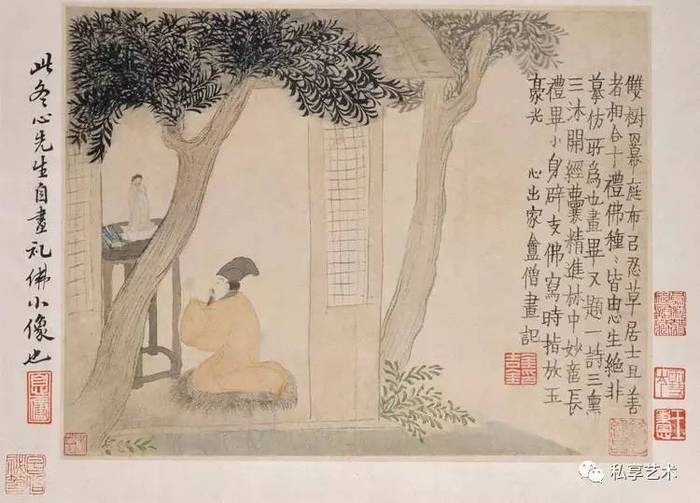 雙樹幕庭布㠯忍草居士且善
者相合十禮佛種〻皆由心生絶非
摹仿所為也畫畢又題一詩三熏
三沐開經囊精進林中妙意長
禮畢小身辟支佛寫時指放玉
豪光 心出家盦僧畫記
此冬心先生自畫礼佛小像也
私享艺术